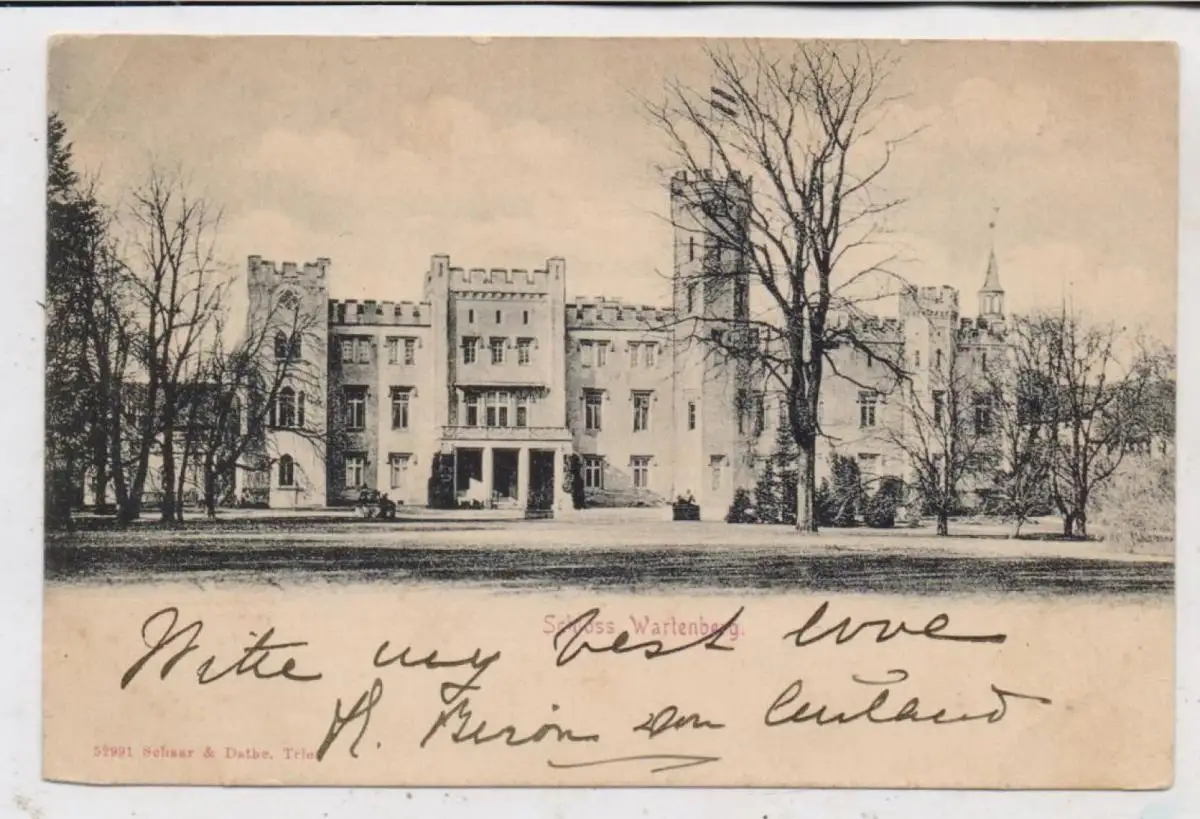 Schloss Wartenberg.
With my best love
H. Biron von Curland
52991 Schaar & Dathe, Trie